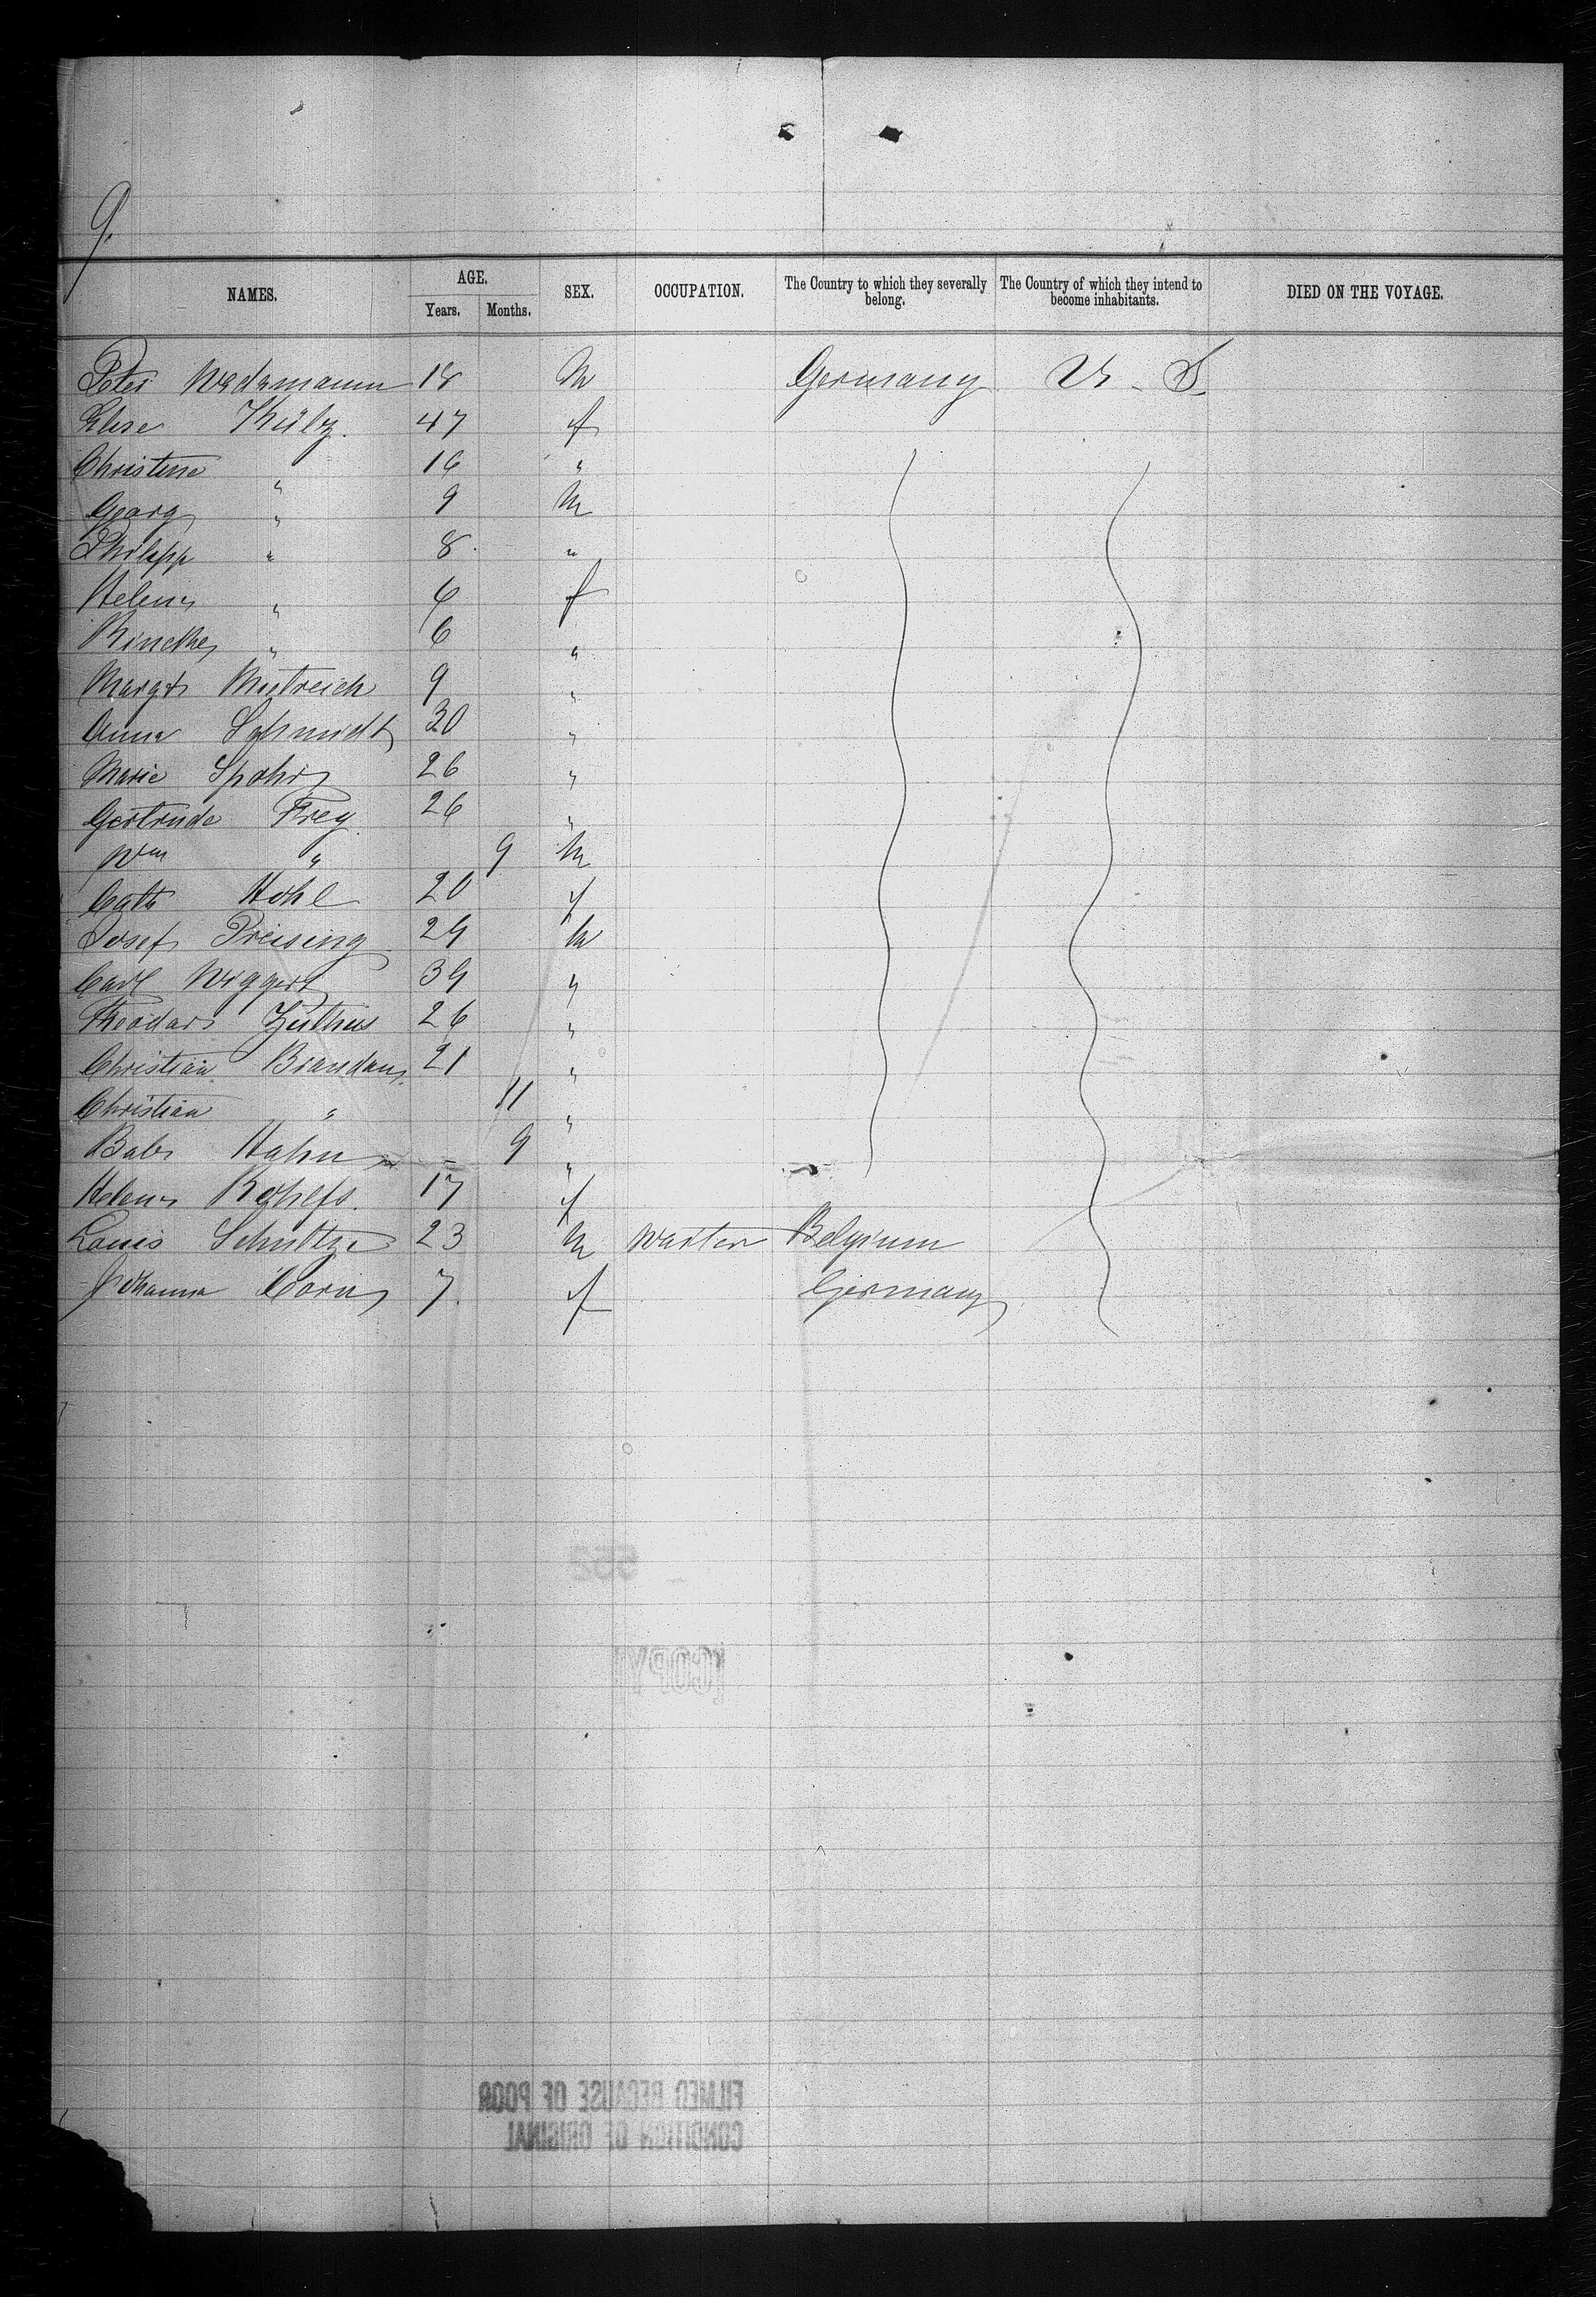 9.
NAMES. AGE. Years. Months. SEX. OCCUPATION. The Country to which they severally belong. The Country of which they intend to become inhabitants. DIED ON THE VOYAGE.
Peter 18 M Germany U. S.
Elise Külz. 47 f
Christine " 16 "
Georg " 9 M
Philipp " 8 "
Helena " f
" 6 "
Margt 9 "
Anna Schmidt 30 "
Marie Spohr 26 "
Gertrude Frey 26 "
Wm " 9 M
Cath Hohl 20 f
Josef Preising M
Carl Wiggert "
Theodor 26 "
Christian 21 "
Christian " 11 "
Bab Hahn - 9 "
Helena 17 f
Louis Schultze 23 M Waiter Belgium
Johanna 7. f Germany
552
[COPY]
FILMED BECAUSE OF POOR
CONDITION OF ORIGINAL